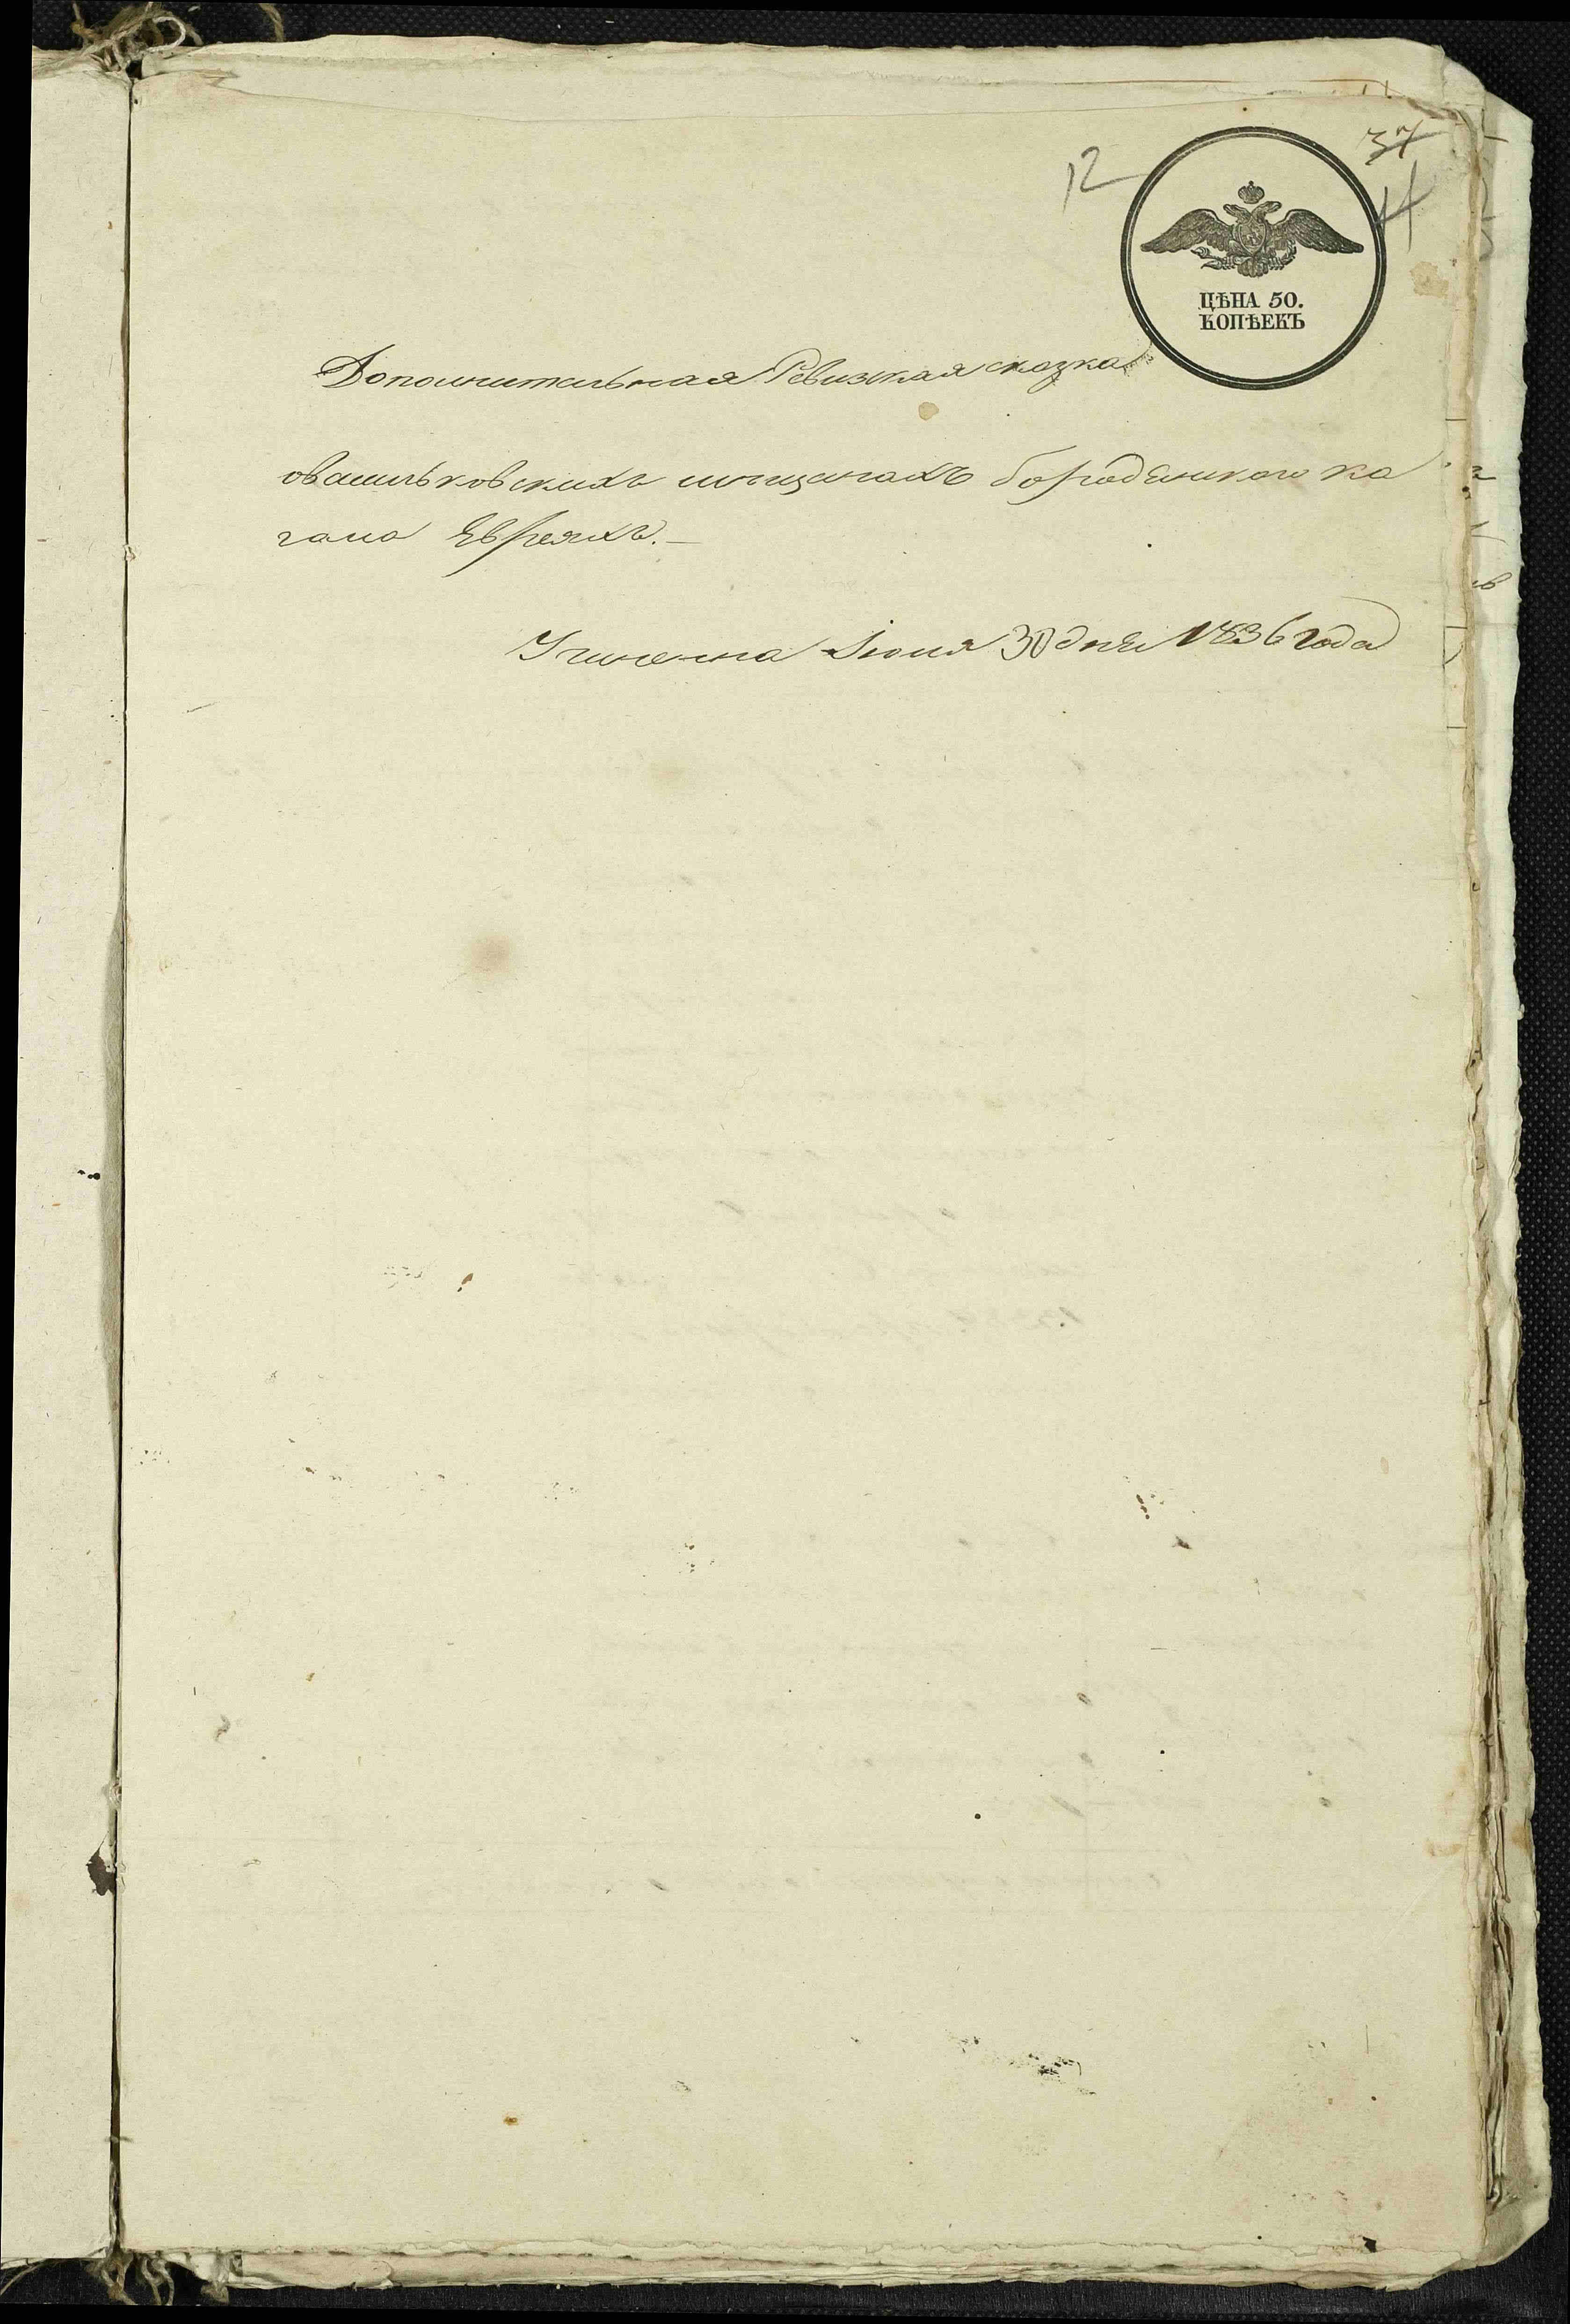 12
37
4
ЦѢНА 50.
КОПѢЕКЪ
Дополнительная Ревизкая сказка
овасильковскихъ мещанахъ бородянского ка
гала Евреяхъ.—
Учинена Іюня 30 дня 1836 года